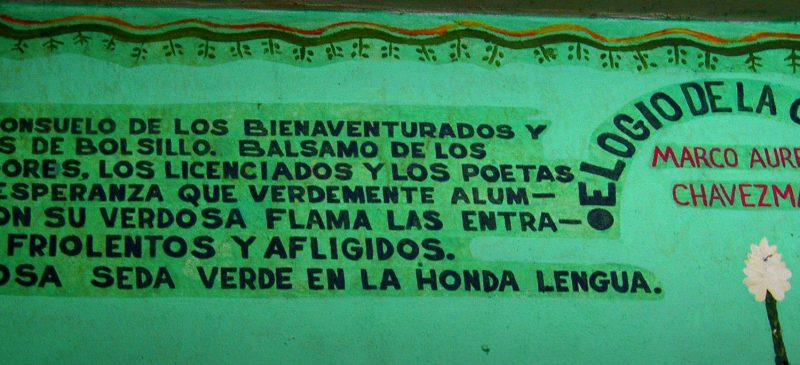 ONSUELO DE LOS BIENAVENTURADOS Y
S DE BOLSILLO. BALSAMO DE LOS
ORES, LOS LICENCIADOS Y LOS POETAS
ESPERANZA QUE VERDEMENTE ALUM-
ON SU VERDOSA FLAMA LAS ENTRA-
FRIOLENTOS Y AFLIGIDOS.
OSA SEDA VERDE EN LA HONDA LENGUA.
ELOGIO DE LA
MARCO AURE
CHAVEZMA